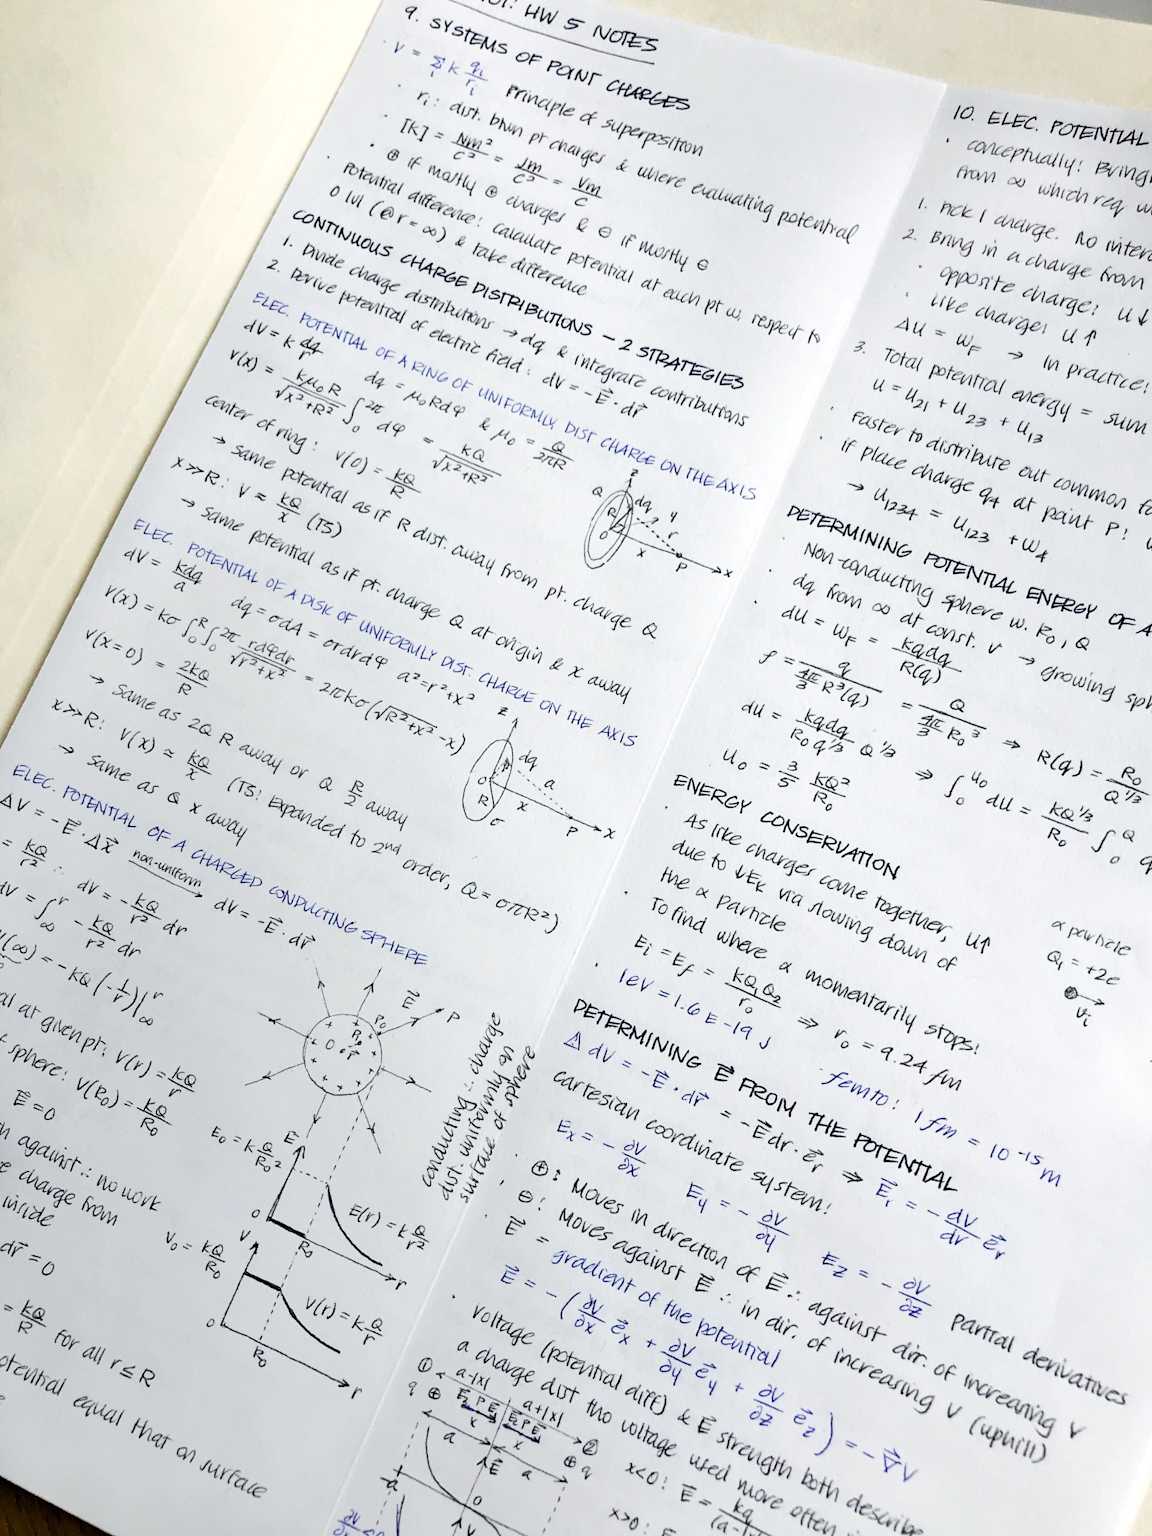 HW 5 NOTES
9. SYSTEMS OF POINT CHARGES
· V = Σ_i k q_i/r_i principle of superposition
· r_i: dist. btwn pt charges & where evaluating potential
· [K] = Nm²/C² = Jm/C² = Vm/C
· ⊕ if mostly ⊕ charges & ⊖ if mostly ⊖
· Potential difference: calculate potential at each pt w. respect to
0 lvl (@ r = ∞) & take difference
CONTINUOUS CHARGE DISTRIBUTIONS — 2 STRATEGIES
1. Divide charge distributions → dq & integrate contributions
2. Derive potential of electric field: dV = -E⃗ · dr⃗
ELEC. POTENTIAL OF A RING OF UNIFORMLY DIST CHARGE ON THE AXIS
dV = k dq/r dq = μ₀Rdφ & μ₀ = Q/2πR
V(x) = kμ₀R/√x²+R² ∫₀^2π dφ = kQ/√x²+R²
center of ring: V(0) = kQ/R
→ same potential as if R dist. away from pt. charge Q
x >> R: V ≈ kQ/x (TS)
→ same potential as if pt. charge Q at origin & x away
z
Q
dq
R
y
r
0
x
P
x
ELEC. POTENTIAL OF A DISK OF UNIFORMLY DIST. CHARGE ON THE AXIS
dV = kdq/a dq = σdA = σrdrdφ a² = r²+x²
V(x) = kσ ∫₀^R ∫₀^2π rdφdr/√r²+x² = 2πkσ(√R²+x² - x)
V(x=0) = 2kQ/R
→ same as 2Q R away or Q R/2 away
x>>R: V(x) ≈ kQ/x (TS: expanded to 2nd order, Q = σπR²)
→ same as Q x away
z
dq
a
r
0
R
x
σ
P
x
ELEC. POTENTIAL OF A CHARGED CONDUCTING SPHERE
ΔV = -E⃗ · Δx⃗ non-uniform dV = -E⃗ · dr⃗
= kQ/r² ∴ dV = -kQ/r² dr
dV = ∫_∞^r -kQ/r² dr
V(∞) = -kQ(-1/r)|_∞^r
al at given pt: V(r) = kQ/r
sphere: V(R₀) = kQ/R₀
E⃗ = 0
against ∴ no work
charge from
inside
dr⃗ = 0
= kQ/R for all r ≤ R
otential equal that on surface
E⃗
P
0
conducting ∴ charge
dist. uniformly on
surface of sphere
E₀ = k Q/R₀²
E
0
R₀
E(r) = k Q/r²
r
V₀ = kQ/R₀
V
0
R₀
V(r) = k Q/r
r
10. ELEC. POTENTIAL
· conceptually: Bring
from ∞ which req.
1. Pick 1 charge. No
2. Bring in a charge from
· opposite charge: U↓
· like charge: U↑
ΔU = W_F → In practice:
3. Total potential energy = sum
U = U₂₁ + U₂₃ + U₁₃
· Faster to distribute out common
· if place charge q₄ at point P:
→ U₁₂₃₄ = U₁₂₃ + W₄
DETERMINING POTENTIAL ENERGY OF A
· Non-conducting sphere w. R₀, Q
· dq from ∞ at const. v → growing
dU = W_F = kqdq/R(q)
ρ = q/(4π/3 R³(q)) = Q/(4π/3 R₀³) ⇒ R(q) = R₀/Q^1/3
dU = kqdq/R₀q^1/3 Q^1/3 ⇒ ∫₀^U₀ dU = kQ^1/3/R₀ ∫₀^Q q
U₀ = 3/5 kQ²/R₀
ENERGY CONSERVATION
· As like charges come together, U↑
due to ↓E_k via slowing down of
the α particle
· To find where α momentarily stops:
E_i = E_f = kQ₁Q₂/r₀ ⇒ r₀ = 9.24 fm
· 1eV = 1.6 E-19 J · femto: 1 fm = 10⁻¹⁵ m
α particle
Q₁ = +2e
v⃗_i
DETERMINING E⃗ FROM THE POTENTIAL
Δ dV = -E⃗ · dr⃗ = -E⃗dr · e⃗_r ⇒ E⃗_r = -dV/dr e⃗_r
cartesian coordinate system:
E_x = -∂V/∂x E_y = -∂V/∂y E_z = -∂V/∂z partial derivatives
· ⊕: Moves in direction of E⃗ ∴ against dir. of increasing V
· ⊖: Moves against E⃗ ∴ in dir. of increasing V (uphill)
· E⃗ = gradient of the potential
E⃗ = -(∂V/∂x e⃗_x + ∂V/∂y e⃗_y + ∂V/∂z e⃗_z) = -∇⃗V
· voltage (potential diff) & E⃗ strength both describe
a charge dist tho voltage used more often
① a-|x| a+|x| ②
q ⊕
⊕ q
x
a
a
E⃗
-a
0
V
x<0: E⃗ = kq
x>0: E